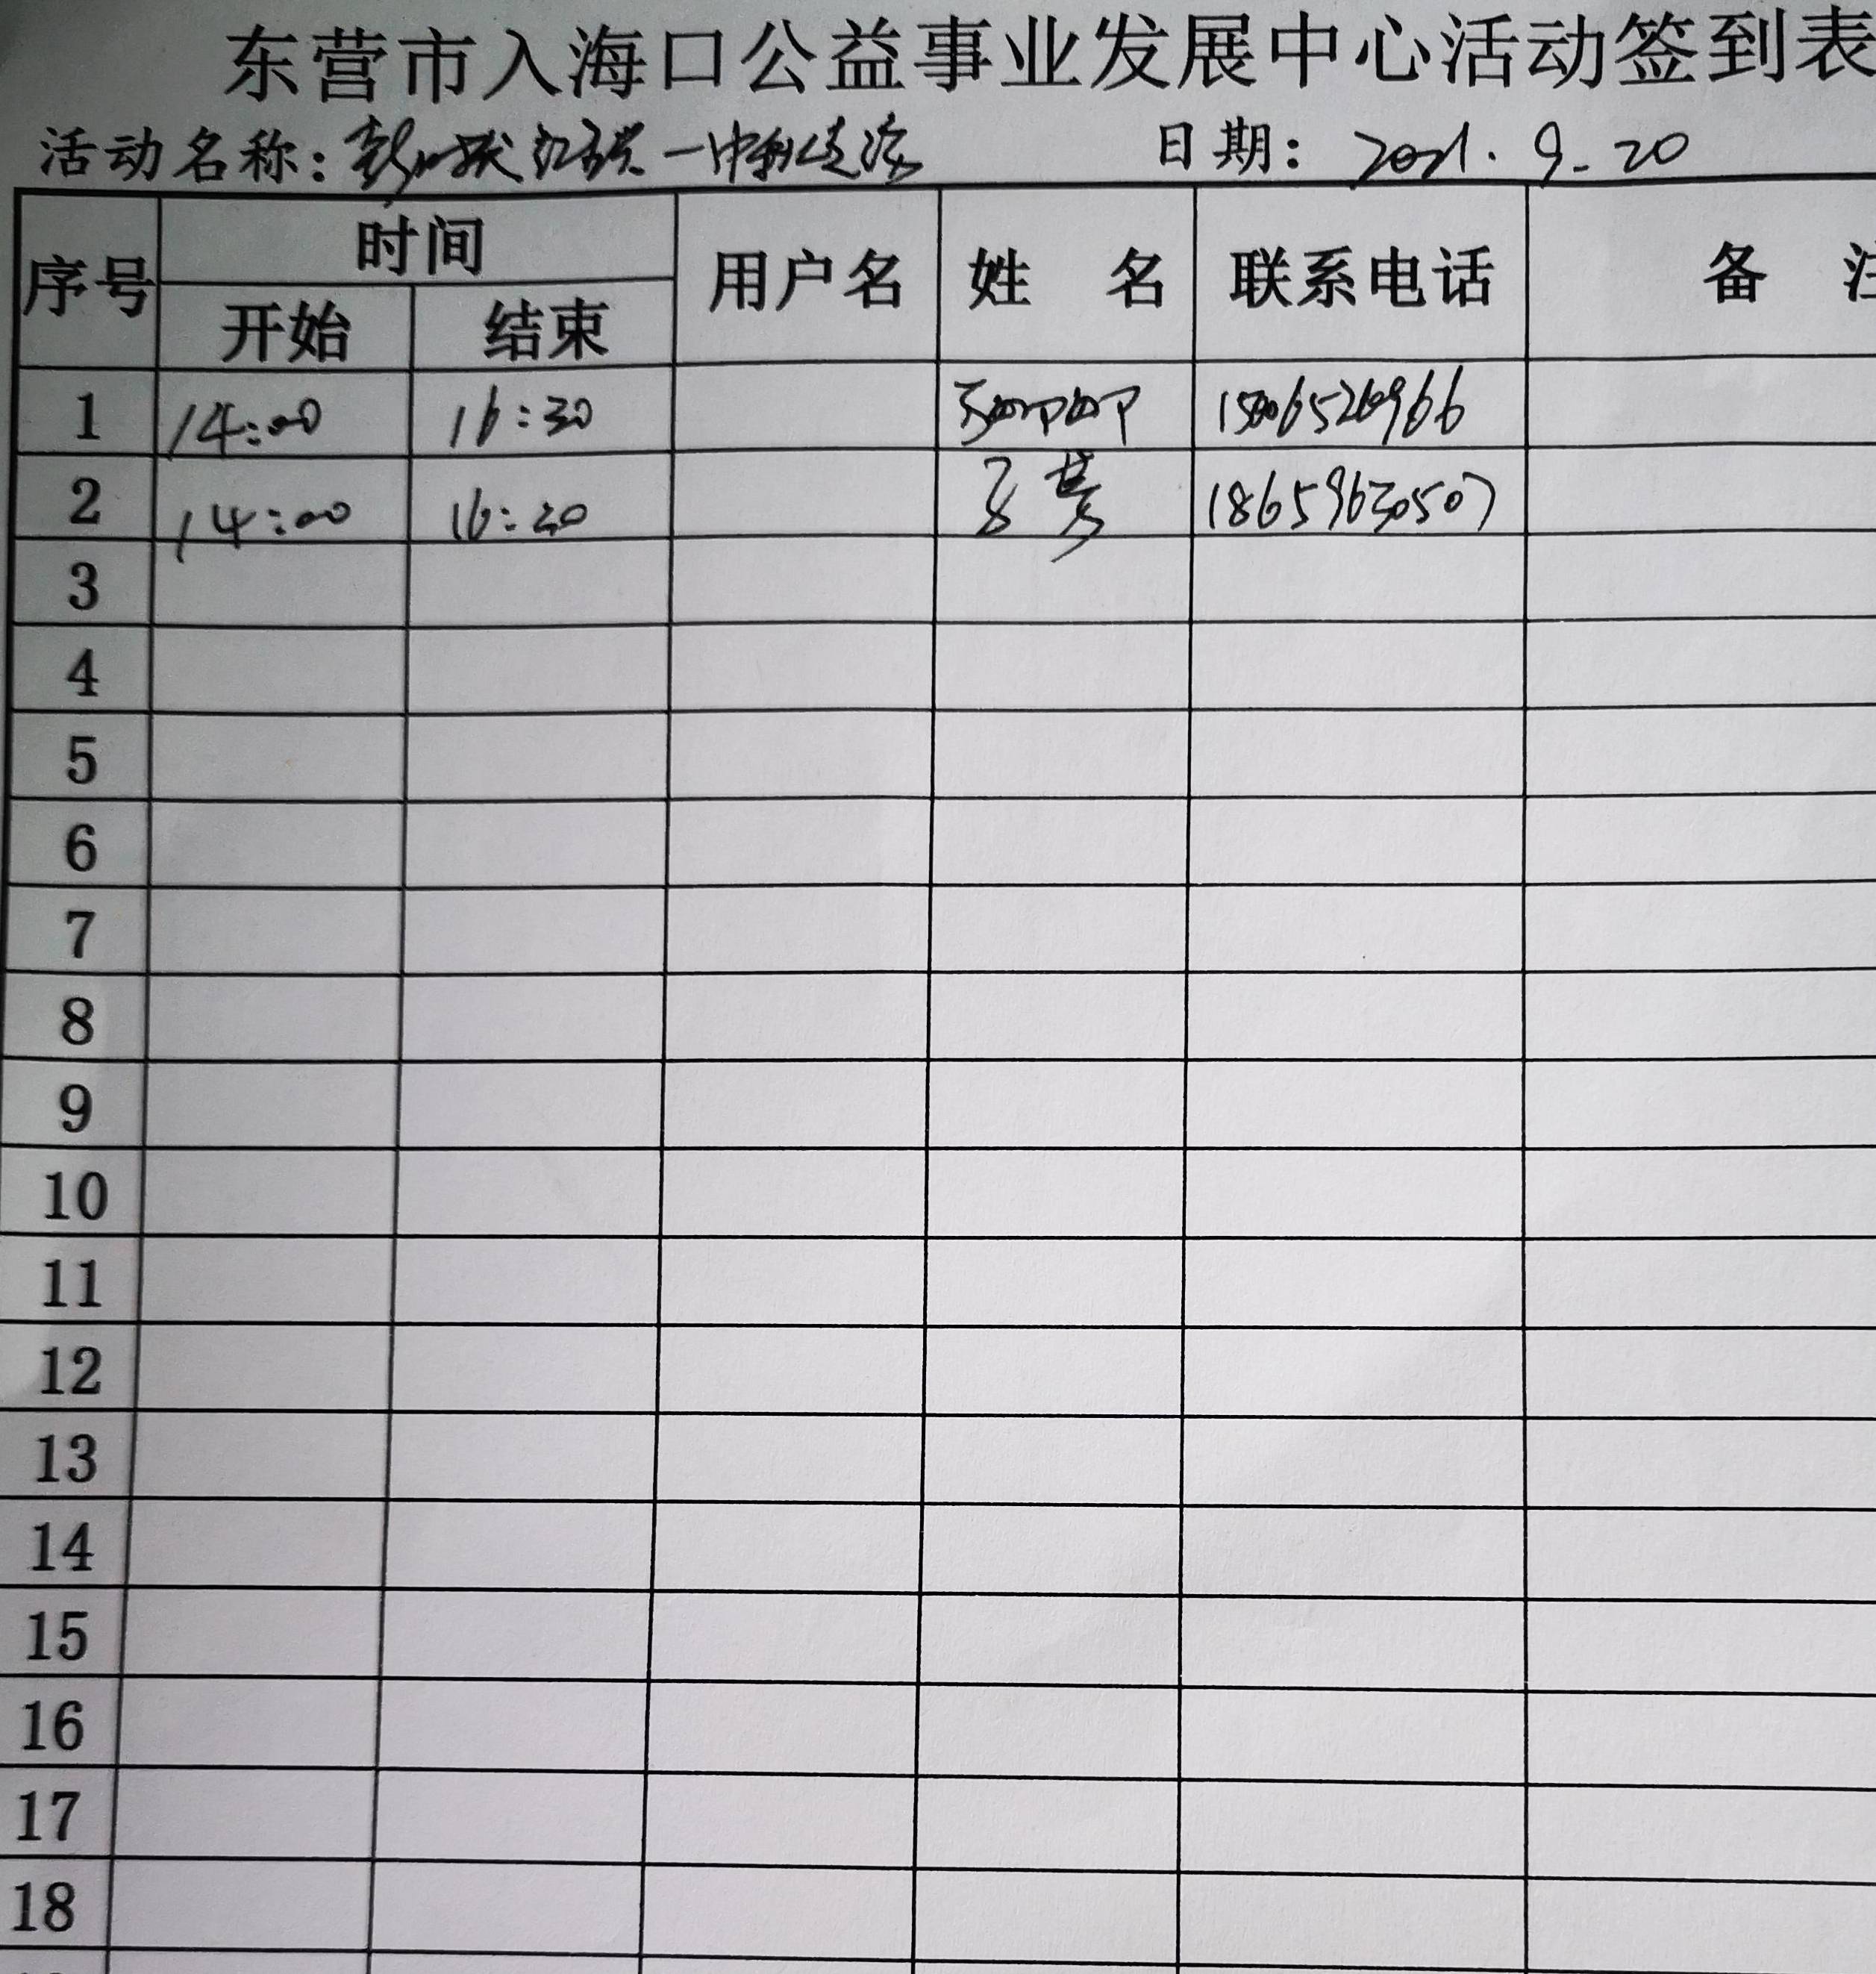 东营市入海口公益事业发展中心活动签到表
活动名称: 日期: 2021.9.20
序号 时间 用户名 姓 名 联系电话 备
开始 结束
1 14:00 16:30
2 14:00 16:30 18659630507
3
4
5
6
7
8
9
10
11
12
13
14
15
16
17
18